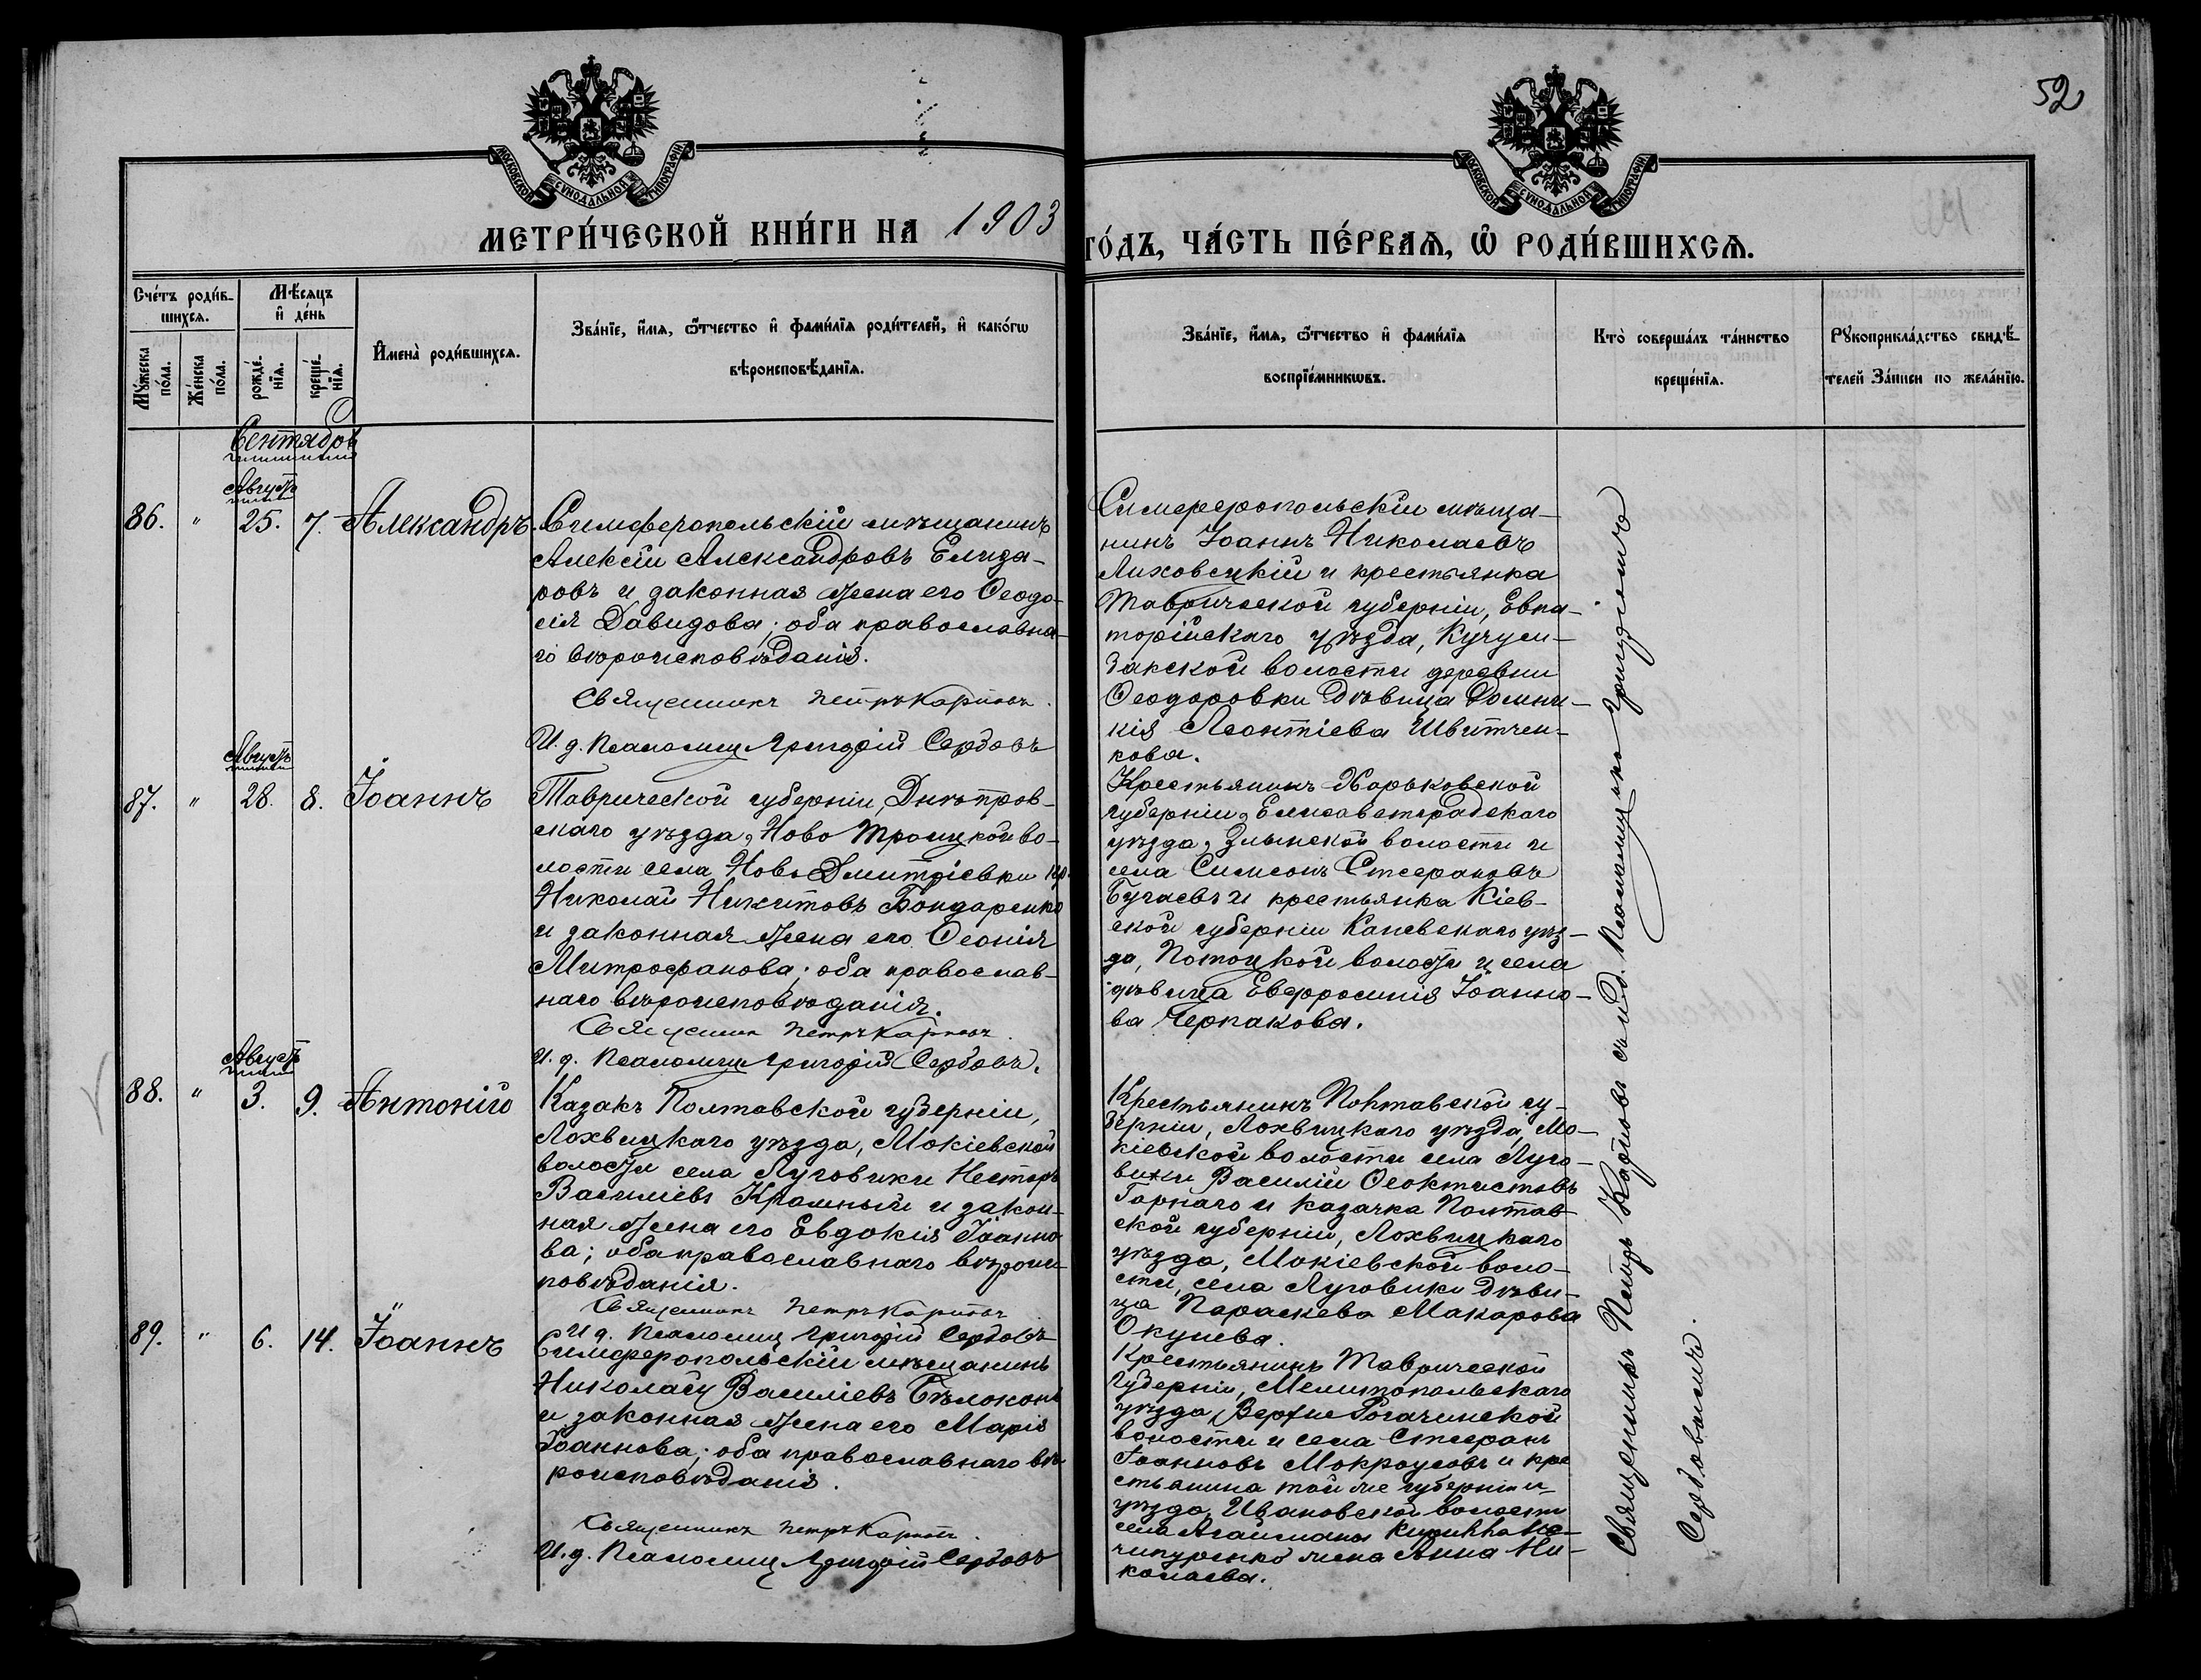 52
МОСКОВСКОЙ СѴНОДАЛЬНОЙ ТИПОГРАФІИ
МОСКОВСКОЙ СѴНОДАЛЬНОЙ ТИПОГРАФІИ
МЕТРИ́ЧЕСКОЙ КНИ́ГИ НА 1903
ГО́ДЪ, ЧА́СТЬ ПЕ́РВАЯ, Ѽ РОДИ́ВШИХСЯ.
Сче́тъ роди́в-
шихся.
Мѣ́сяцъ
и҆ де́нь
Мꙋ́жеска
по́ла.
Же́нска
по́ла.
рожде́-
нїя.
креще́-
нїя.
И҆мена̀ роди́вшихся.
Зва́нїе, и҆́мя, ѻ҆́тчество и҆ фами́лїя роди́телей, и҆ како́гѡ
вѣроисповѣ́данїя.
Зва́нїе, и҆́мя, ѻ҆́тчество и҆ фами́лїя
воспрїе́мникѡвъ.
Кто̀ соверша́лъ та́инство
креще́нїя.
Рꙋкоприкла́дство свидѣ́-
телей за́писи по жела́нїю.
Сентябрь
Августъ
86. " 25. 7. Александръ.
Симферопольскій мѣщанинъ
Алексій Александровъ Елиза-
ровъ и законная жена его Ѳеодо-
сія Давидова; оба православна-
го вѣроисповѣданія.
Священникъ Петръ Карповъ.
И. д. Псаломщ. Григорій Сербовъ
Симферопольскій мѣща-
нинъ Іоаннъ Николаевъ
Лиховецкій и крестьянка
Таврической губерніи, Евпа-
торійскаго уѣзда,
волости деревни
Ѳеодоровки дѣвица Домни-
кія Леонтіева Швитчен-
кова.
Августъ
87. " 28. 8. Іоаннъ
Таврической губерніи, Днѣпров-
скаго уѣзда, Ново Троицкой во-
лости села Ново Дмитріевки кр.
Николай Никитовъ Бондаренко
и законная жена его Ѳеонія
Митрофанова; оба православ-
наго вѣроисповѣданія.
Священникъ Петръ Карповъ.
И. д. Псаломщ. Григорій Сербовъ.
Крестьянинъ Харьковской
губерніи, Елисаветградскаго
уѣзда, Злынской волости и
села Симеонъ Стефановъ
Бугаевъ и крестьянка Кіев-
ской губерніи Каневскаго уѣз-
да, Потоцкой волости и села
дѣвица Евфросинія Іоанно-
ва Черпакова.
Августъ
88. " 3. 9. Антоній
Казакъ Полтавской губерніи,
Лохвицкаго уѣзда, Мокіевской
волости села Луговики Несторъ
Василіевъ Крамный и закон-
ная жена его Евдокія Іоанно-
ва; оба православнаго вѣроис-
повѣданія.
Священникъ Петръ Карповъ
И. д. Псаломщ. Григорій Сербовъ
Крестьянинъ Полтавской гу-
берніи, Лохвицкаго уѣзда, Мо-
кіевской волости села Луго-
вики Василій Ѳеоктистовъ
Горнаго и казачка Полтав-
ской губерніи, Лохвицкаго
уѣзда, Мокіевской воло-
сти, села Луговики дѣви-
ца Параскева Макарова
Окунева.
89. " 6. 14. Іоаннъ
Симферопольскій мѣщанинъ
Николай Василіевъ Бѣлоконь
и законная жена его Марія
Іоаннова; оба православнаго вѣ-
роисповѣданія.
Священникъ Петръ Карповъ.
И. д. Псаломщ. Григорій Сербовъ
Крестьянинъ Таврической
губерніи, Мелитопольскаго
уѣзда, Верхне Рогачинской
волости и села Стефанъ
Іоанновъ Мокроусовъ и кре
стьянина той же губерніи и
уѣзда, Ивановской волости
села Агаймана Кирилла Не-
чипуренко жена Анна Ни-
колаева.
Священникъ Петръ Карповъ съ и. д. Псаломщика Григоріемъ
Сербовымъ.